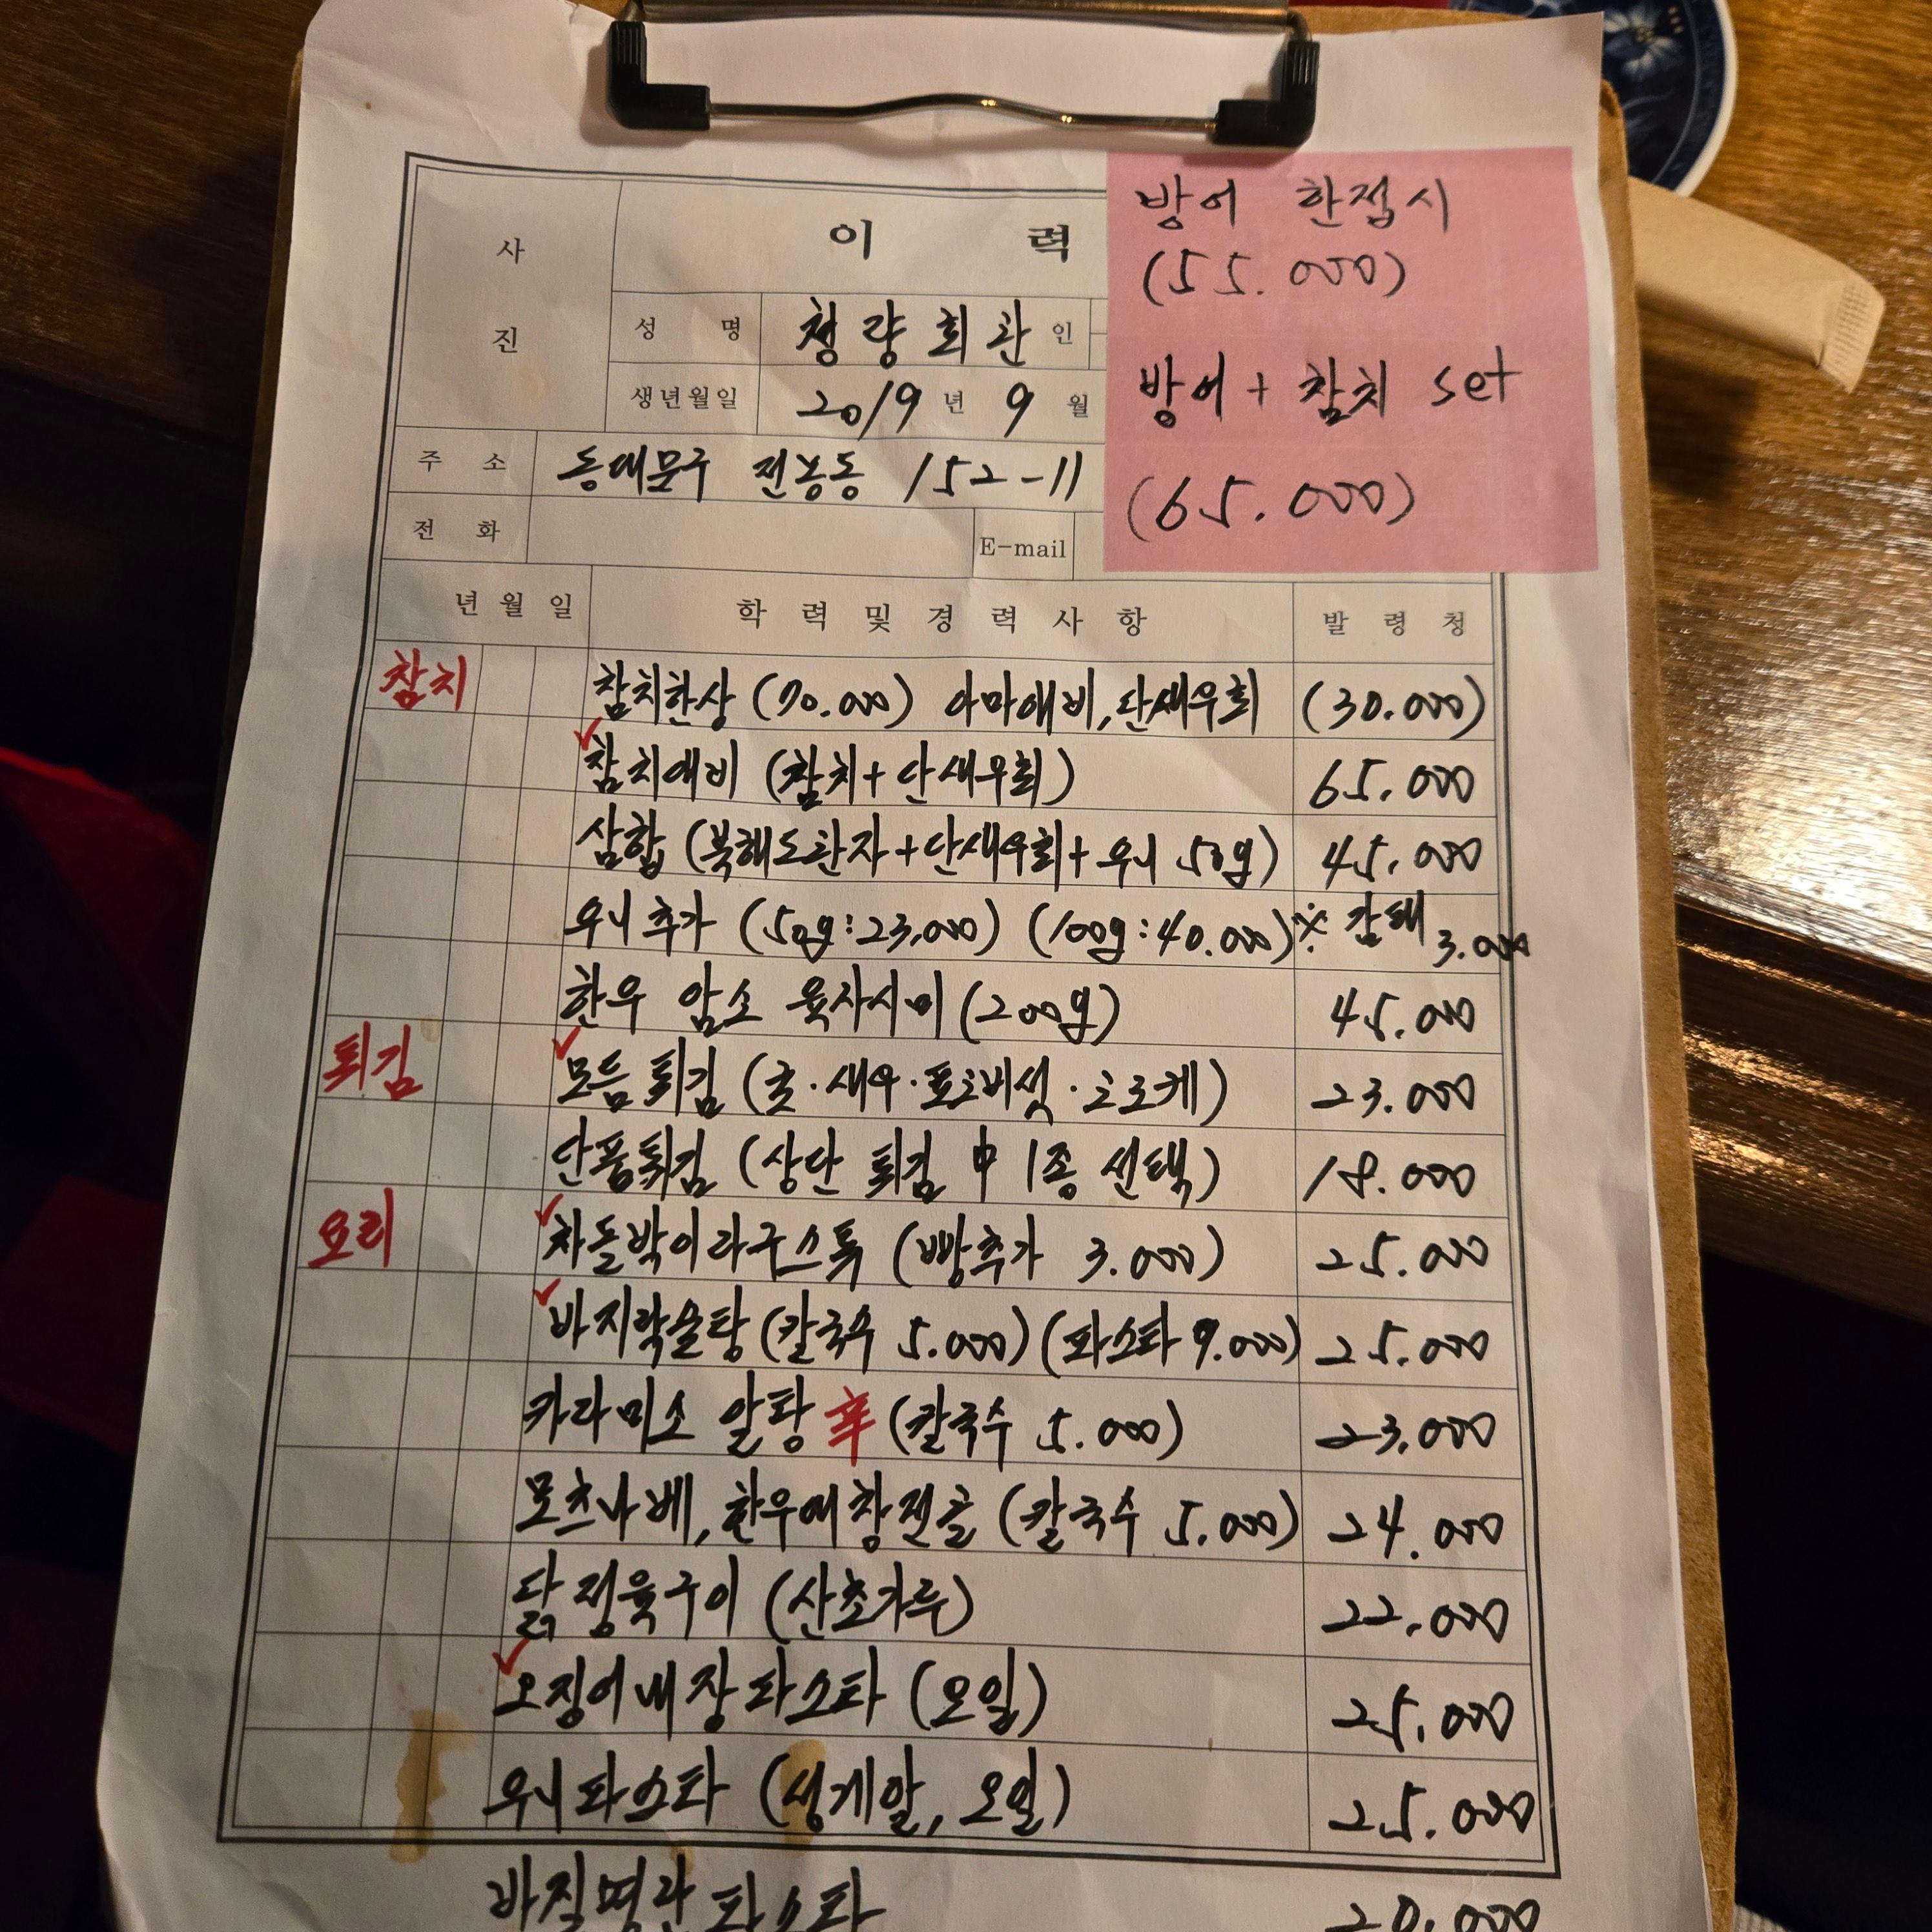 사 진
이 력
성 명 청량회관 인
생년월일 2019 년 9 월
주 소 동대문구 전농동 152-11
전 화 E-mail
방어 한접시
(55.000)
방어 + 참치 set
(65.000)
년 월 일 학 력 및 경 력 사 항 발 령 청
참치 참치한상 (70.000) 아마애비, 단새우회 (30.000)
✓참치애비 (참치+단새우회) 65.000
삼합 (북해도관자+단새우회+우니 50g) 45.000
우니추가 (50g:23,000) (100g:40.000) ※ 감태 3.000
한우 암소 육사시미 (200g) 45.000
튀김 ✓모듬튀김 (굴·새우·표고버섯·고로케) 23.000
단품튀김 (상단 튀김 中 1종 선택) 18.000
요리 ✓차돌박이라구스튜 (빵추가 3.000) 25.000
✓바지락술탕 (칼국수 5.000) (파스타 9.000) 25.000
카라미소 알탕 辛 (칼국수 5.000) 23.000
모츠나베, 한우대창전골 (칼국수 5.000) 24.000
닭정육구이 (산초가루) 22.000
✓오징어내장파스타 (오일) 25.000
우니파스타 (성게알, 오일) 25.000
바질명란파스타 20.000